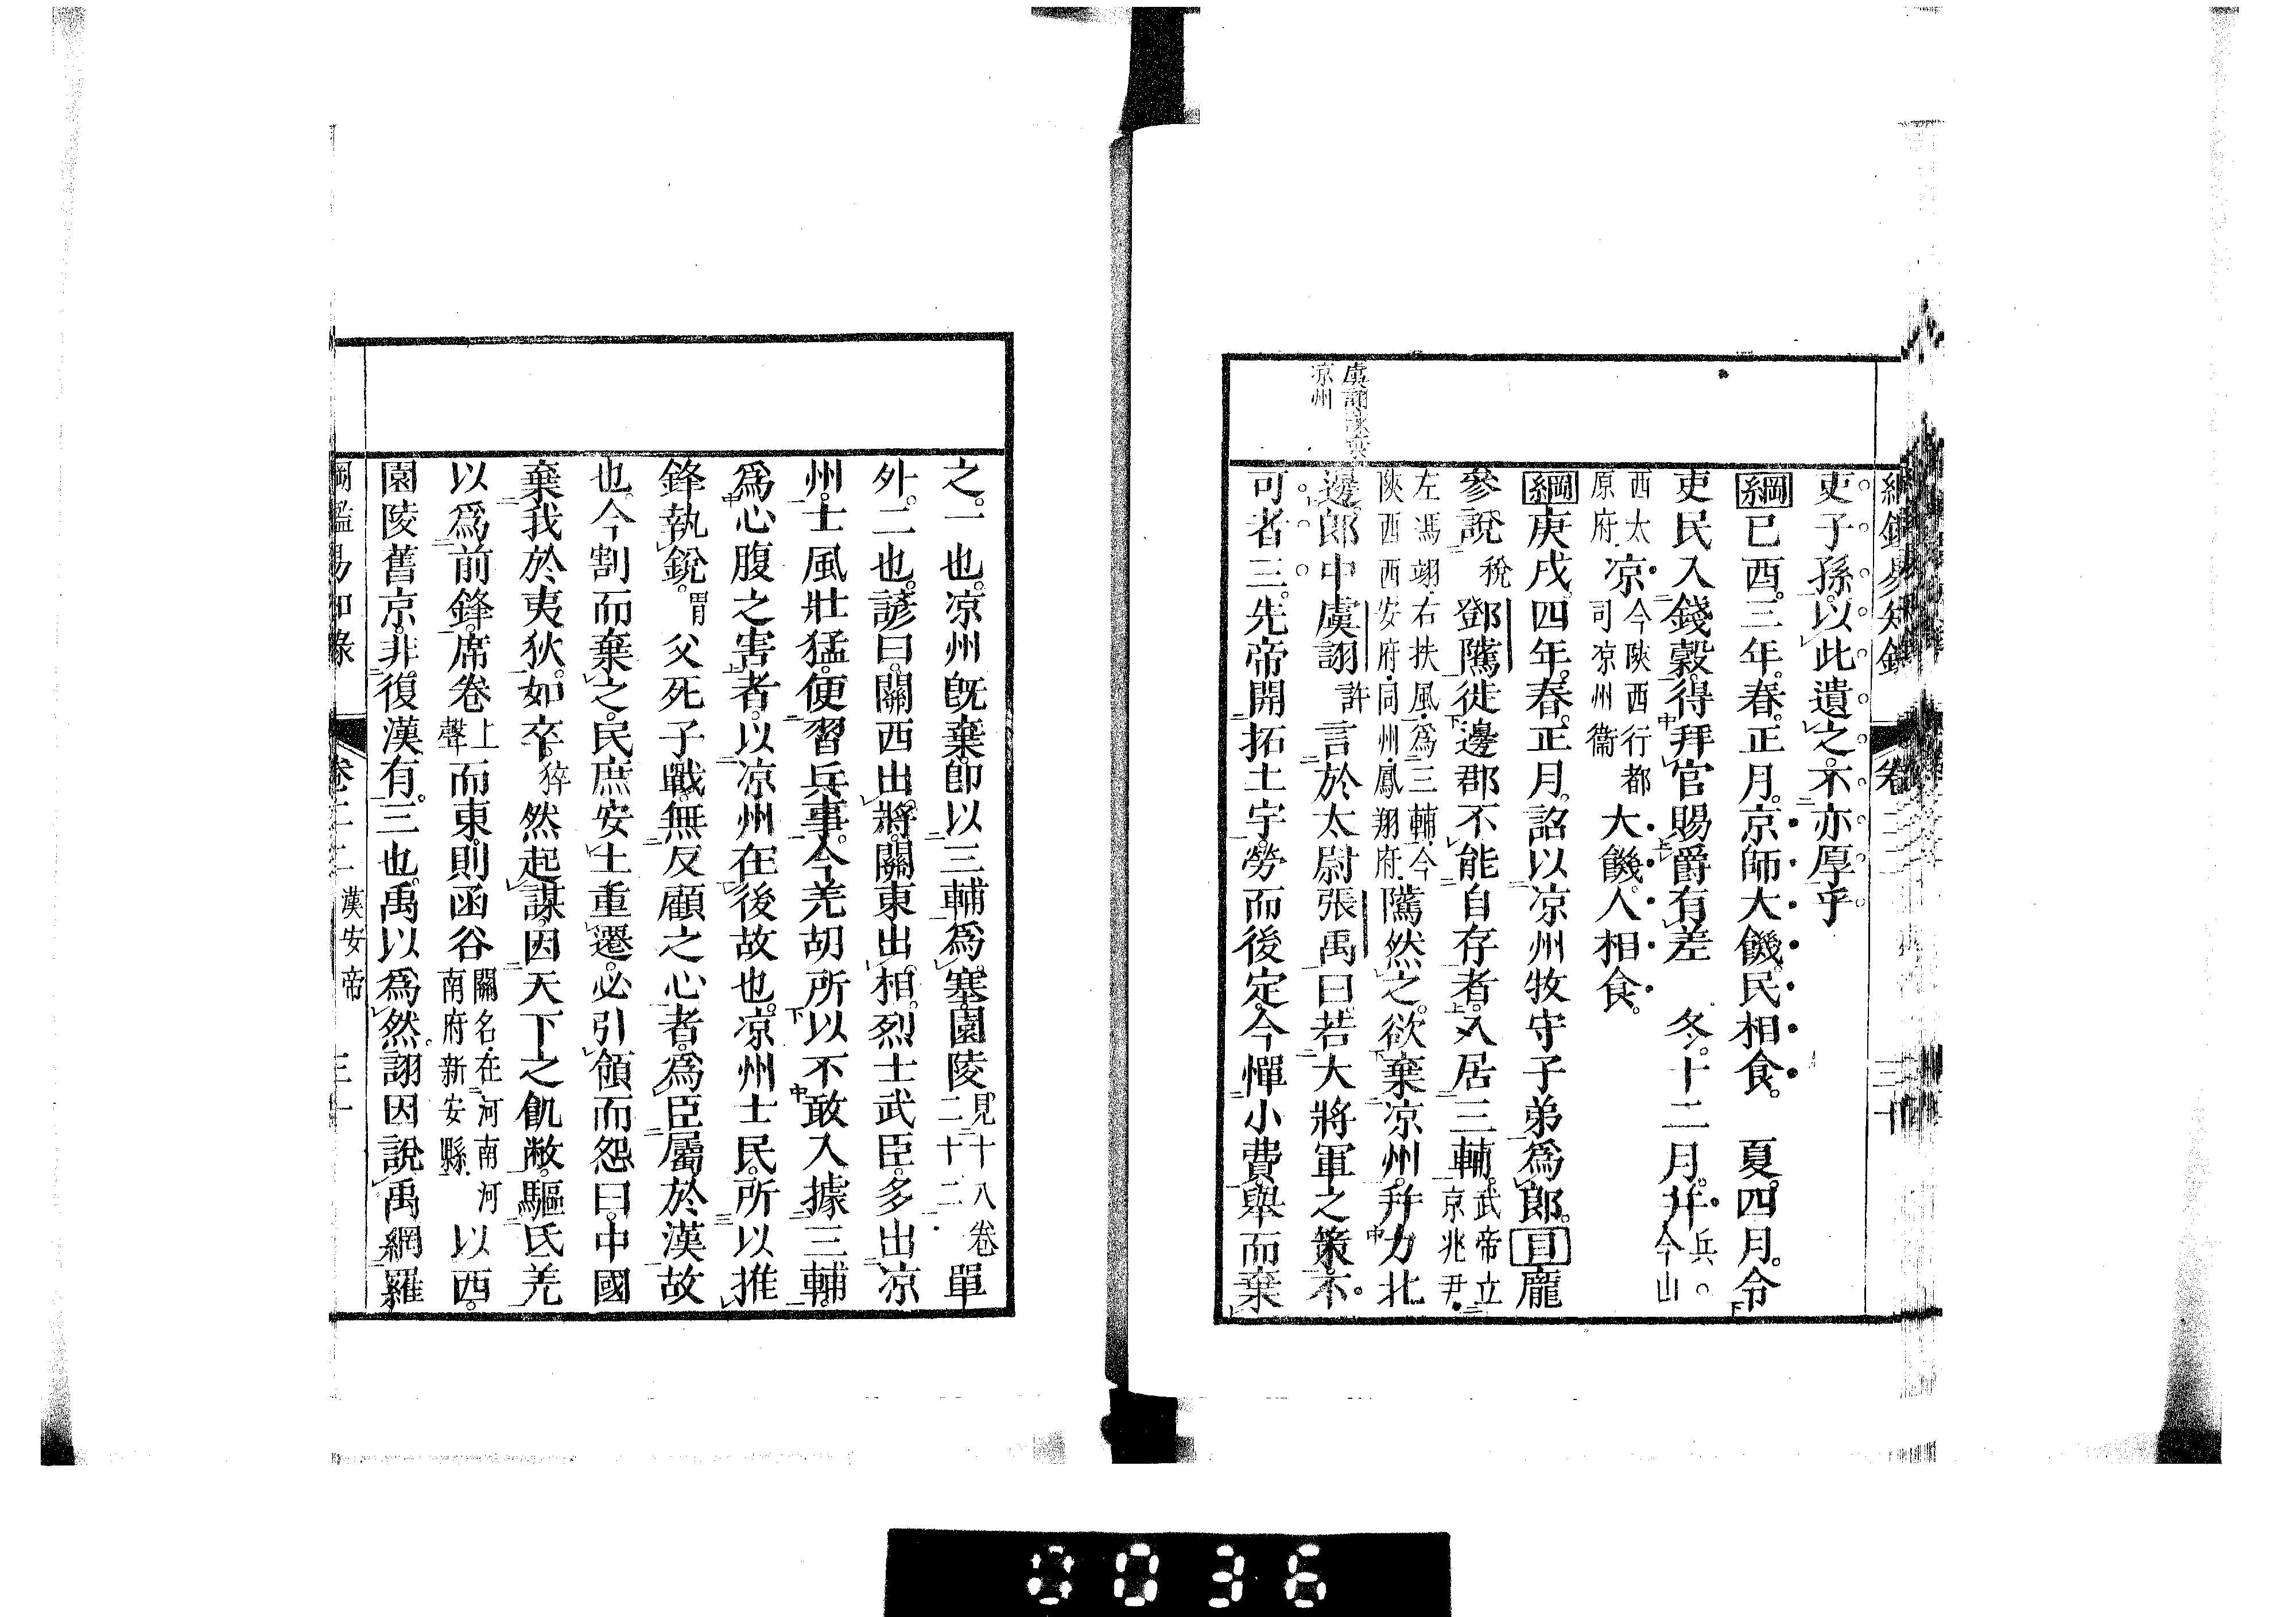 吏子孫以此遺之不亦厚乎
綱己酉三年春正月京師大饑民相食。 夏四月令
吏民入錢穀得拜官賜爵有差 冬十二月幷今山
西太原府涼今陝西行都司涼州衞大饑人相食。
綱庚戌四年春正月詔以涼州牧守子弟爲郎。目龐
參說稅鄧騭徙邊郡不能自存者入居三輔武帝立京兆尹
左馮翊右扶風爲三輔今陝西西安府同州鳳翔府騭然之欲棄涼州幷力北
邊郎中虞詡許言於太尉張禹曰若大將軍之策不
可者三先帝開拓土宇勞而後定今憚小費舉而棄
虞詡諫棄
涼州
之一也涼州旣棄卽以三輔爲塞園陵見十八卷二十二單
外二也諺曰關西出將關東出相烈士武臣多出涼
州士風壯猛便習兵事今羌胡所以不敢入據三輔
爲心腹之害者以涼州在後故也涼州士民所以推
鋒執銳胃父死子戰無反顧之心者爲臣屬於漢故
也今割而棄之民庶安土重遷必引領而怨曰中國
棄我於夷狄如卒猝然起謀因天下之飢敝驅氐羌
以爲前鋒席卷上聲而東則函谷關名在河南河南府新安縣以西
園陵舊京非復漢有三也禹以爲然詡因說禹網羅
綱鑑易知錄 卷二二 漢安帝 三十